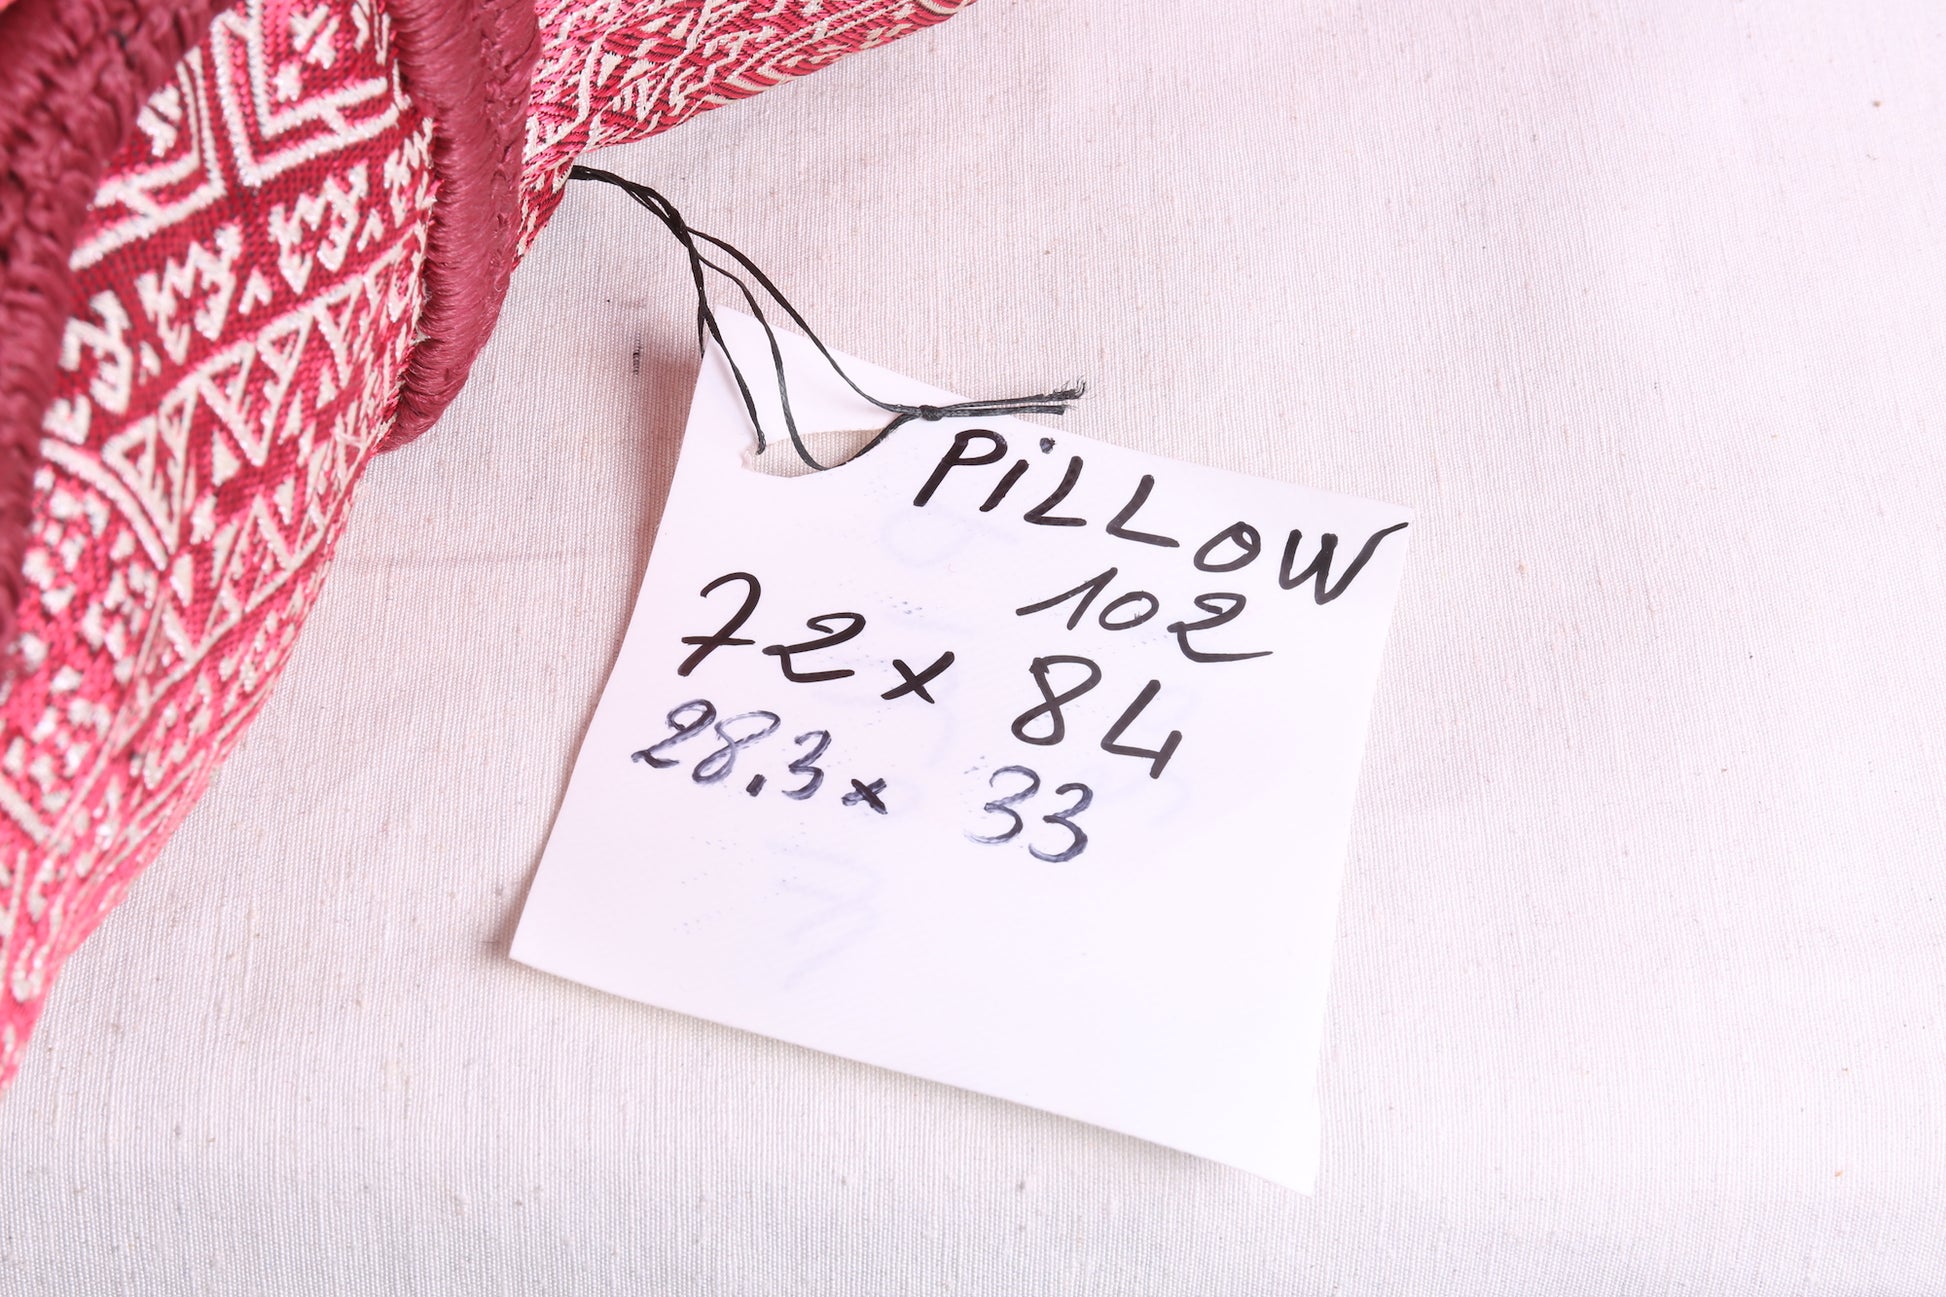 PiLLOW
102
72 x 84
28.3 x 33